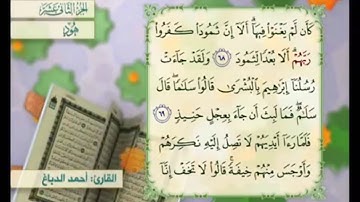 الجزء الثاني عشر
هُود
كَأَن لَّمْ يَغْنَوْا۟ فِيهَآ ۗ أَلَآ إِنَّ ثَمُودَا۟ كَفَرُوا۟
رَبَّهُمْ ۗ أَلَا بُعْدًا لِّثَمُودَ ٦٨ وَلَقَدْ جَآءَتْ
رُسُلُنَآ إِبْرَٰهِيمَ بِٱلْبُشْرَىٰ قَالُوا۟ سَلَـٰمًا ۖ قَالَ
سَلَـٰمٌ ۖ فَمَا لَبِثَ أَن جَآءَ بِعِجْلٍ حَنِيذٍ ٦٩
فَلَمَّا رَءَآ أَيْدِيَهُمْ لَا تَصِلُ إِلَيْهِ نَكِرَهُمْ
وَأَوْجَسَ مِنْهُمْ خِيفَةً ۚ قَالُوا۟ لَا تَخَفْ إِنَّآ
القارئ: أحمد الدباغ